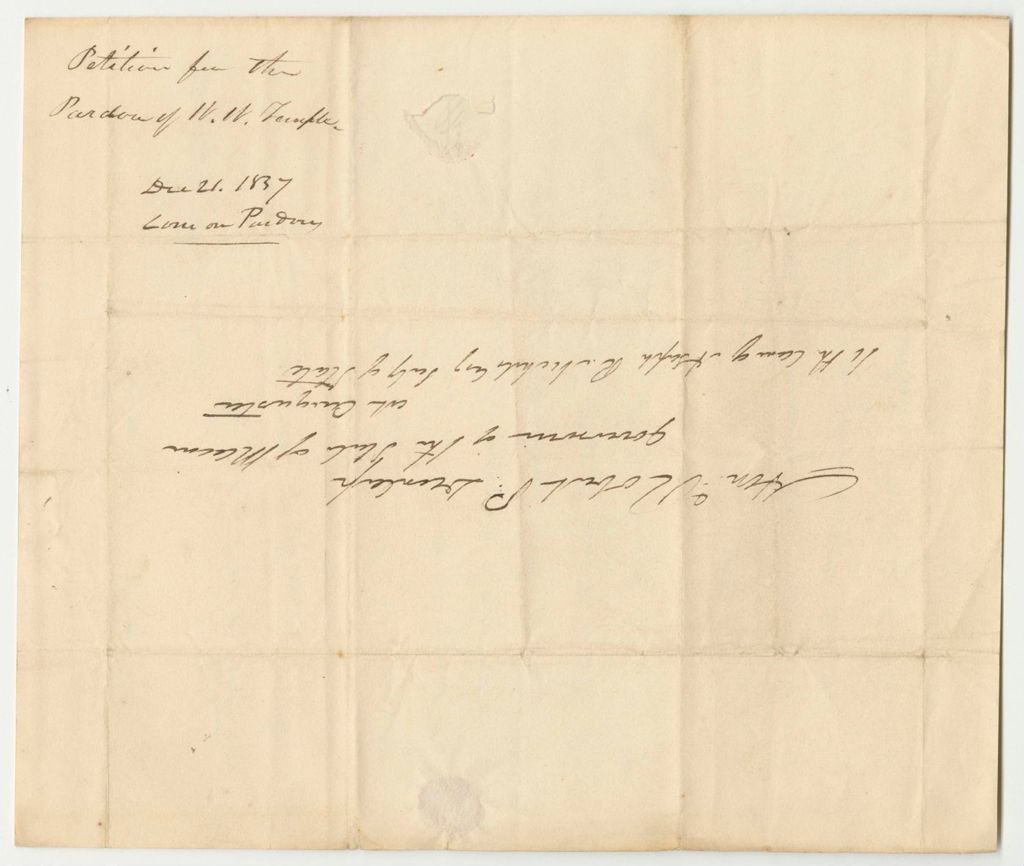 Petition for the
Pardon of W. W. Temple.
Dec 21. 1837
Com on Pardons
Hon. Robert P. Dunlap
Governor of the State of Maine
at Augusta
to the care of Asaph R. Nichols Esq Secty of State